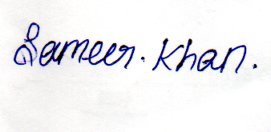 Sameer. Khan.